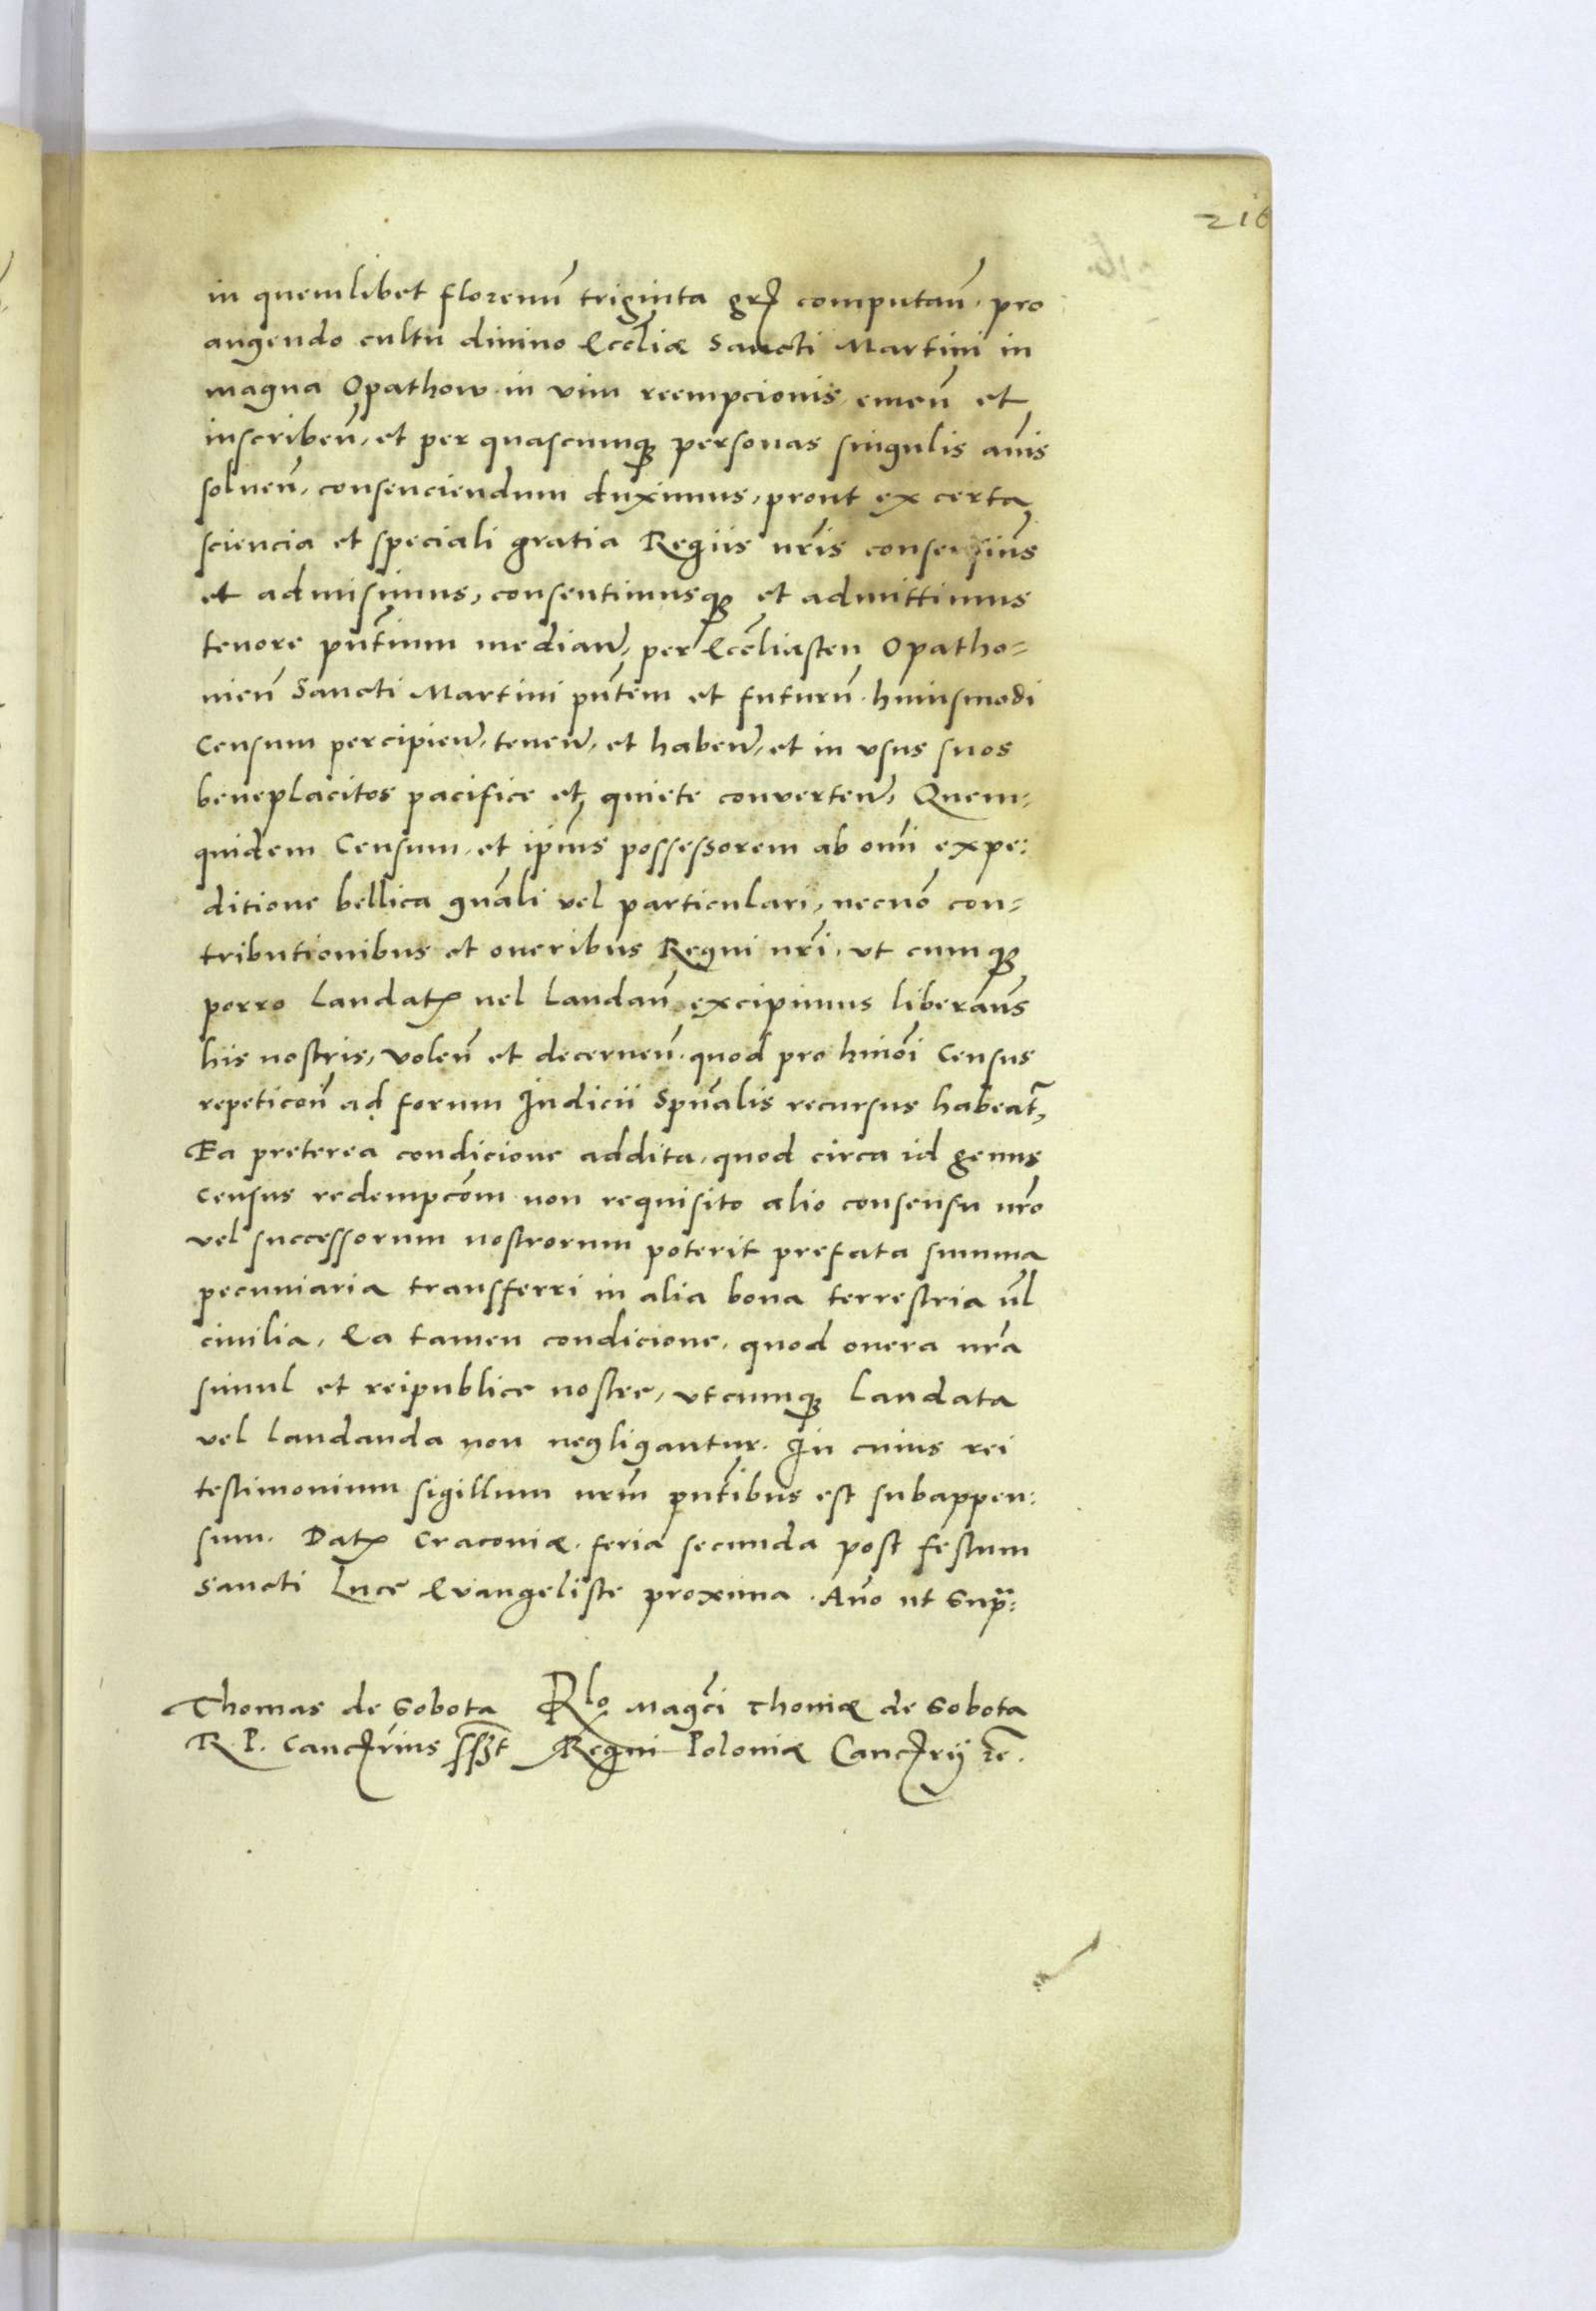 216
in quemlibet florenū triginta gr̄ computan̄. pro
augendo cultu diuino Eccl̄iæ Sancti Martini in
magna Opathow in vim reempcionis emen̄ et
inscriben̄, et per quascumq̨ personas singulis an̄is
soluen̄, consenciendum duximus, prout ex certa
sciencia et speciali gratia Regiis nr̄is consensim̄s
et admisimus, consentimusq̨ et admittimus
tenore pn̄tium median̄, per Eccl̄iasten Opatho=
uien̄ Sancti Martini pn̄tem et futurū. huiusmodi
Censum percipien̄, tenen̄, et haben̄, et in vsus suos
beneplacitos pacifice et quiete conuerten̄, Quem=
quidem Censum, et ip̄ius possessorem ab om̄i expe:
ditione bellica gn̄ali vel particulari, necnō con=
tributionibus et oneribus Regni nr̄i, vt cumq̨
porro laudatꝭ uel laudan̄ excipimus liberam̄s
his nostris, volen̄ et decernen̄. quod pro hmōi Census
repeticōn̄ ad forum Judicii Spūalis recursus habeat̄,
Ea preterea condicione addita, quod circa id genus
Census redempcōm non requisito alio consensu nr̄o
vel successorum nostrorum poterit prefata summa
pecuniaria transferri in alia bona terrestria ūl
ciuilia, Ea tamen condicione, quod onera nr̄a
simul et reipublice nostre, vtcumq̨ laudata
vel laudanda non negligantur. In cuius rei
testimonium sigillum nr̄m pn̄tibus est subappen:
sum. Datꝭ Cracouiæ. feria secunda post festum
Sancti Luce Euangeliste proxima. An̄o ut supr̄:
Thomas de Sobota Rlo Maḡci Thomæ de Sobota
R. P. Cancr̄ius sszt Regni Poloniæ Cancr̄ij